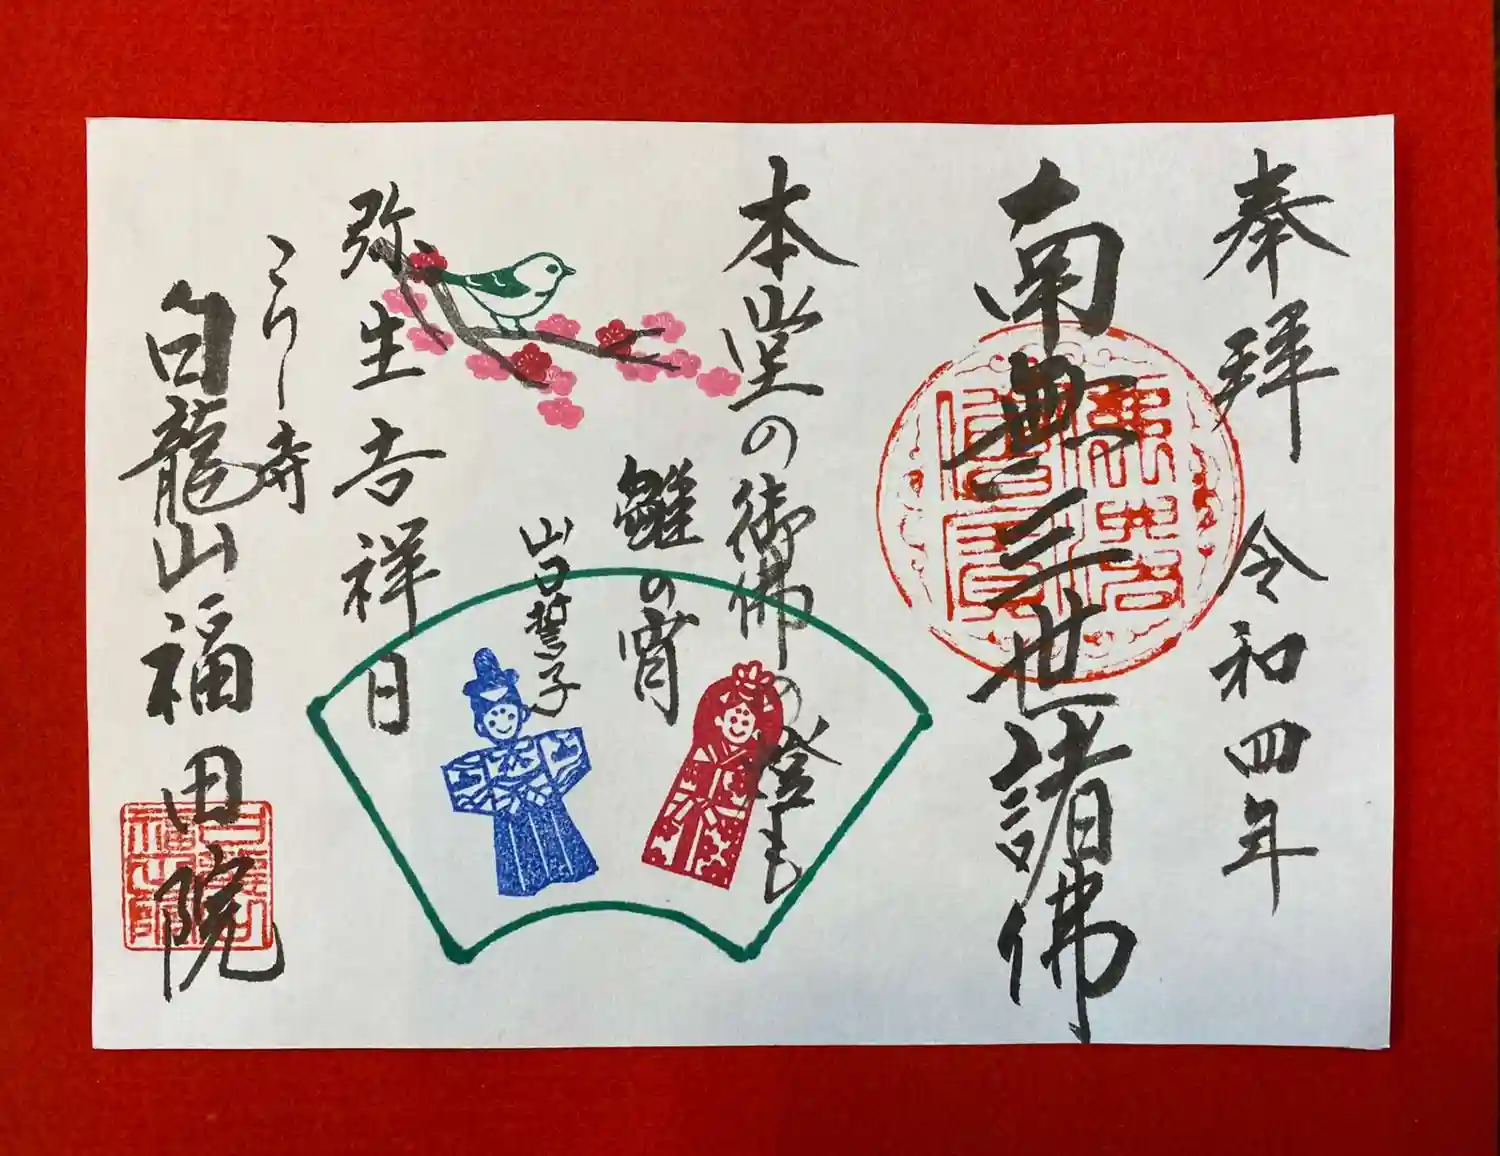 奉拜 令和四年
南無三世諸佛
本堂の御佛の燈も
雛の宵
山口誓子
弥生吉祥日
こうし寺
白龍山福田院